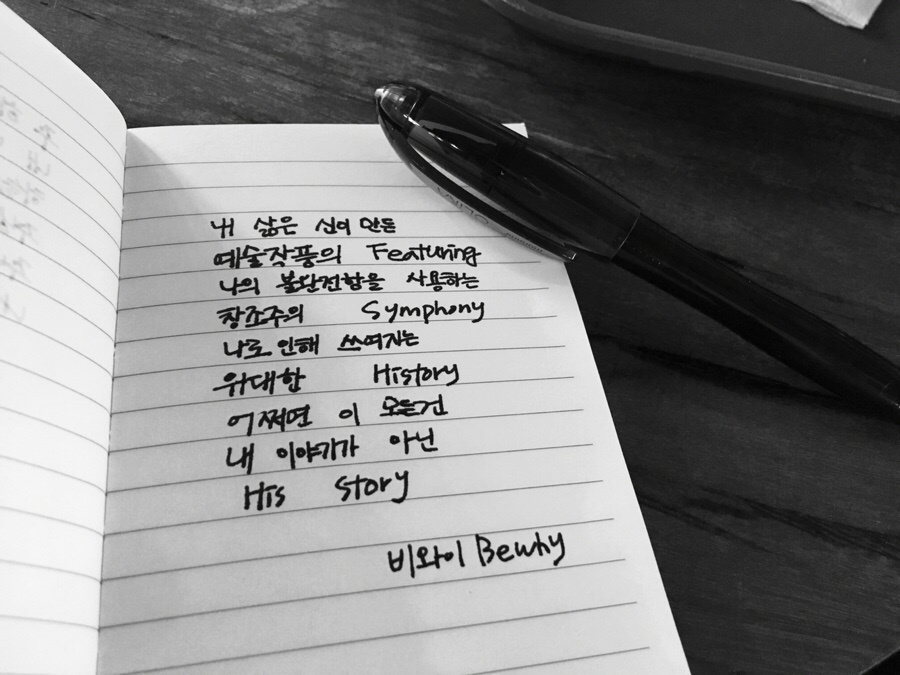 내 삶은 신이 만든
예술작품의 Featuring
나의 불완전함을 사용하는
창조주의 Symphony
나로 인해 쓰여지는
위대한 History
어쩌면 이 모든건
내 이야기가 아닌
His story
비와이 Bewhy